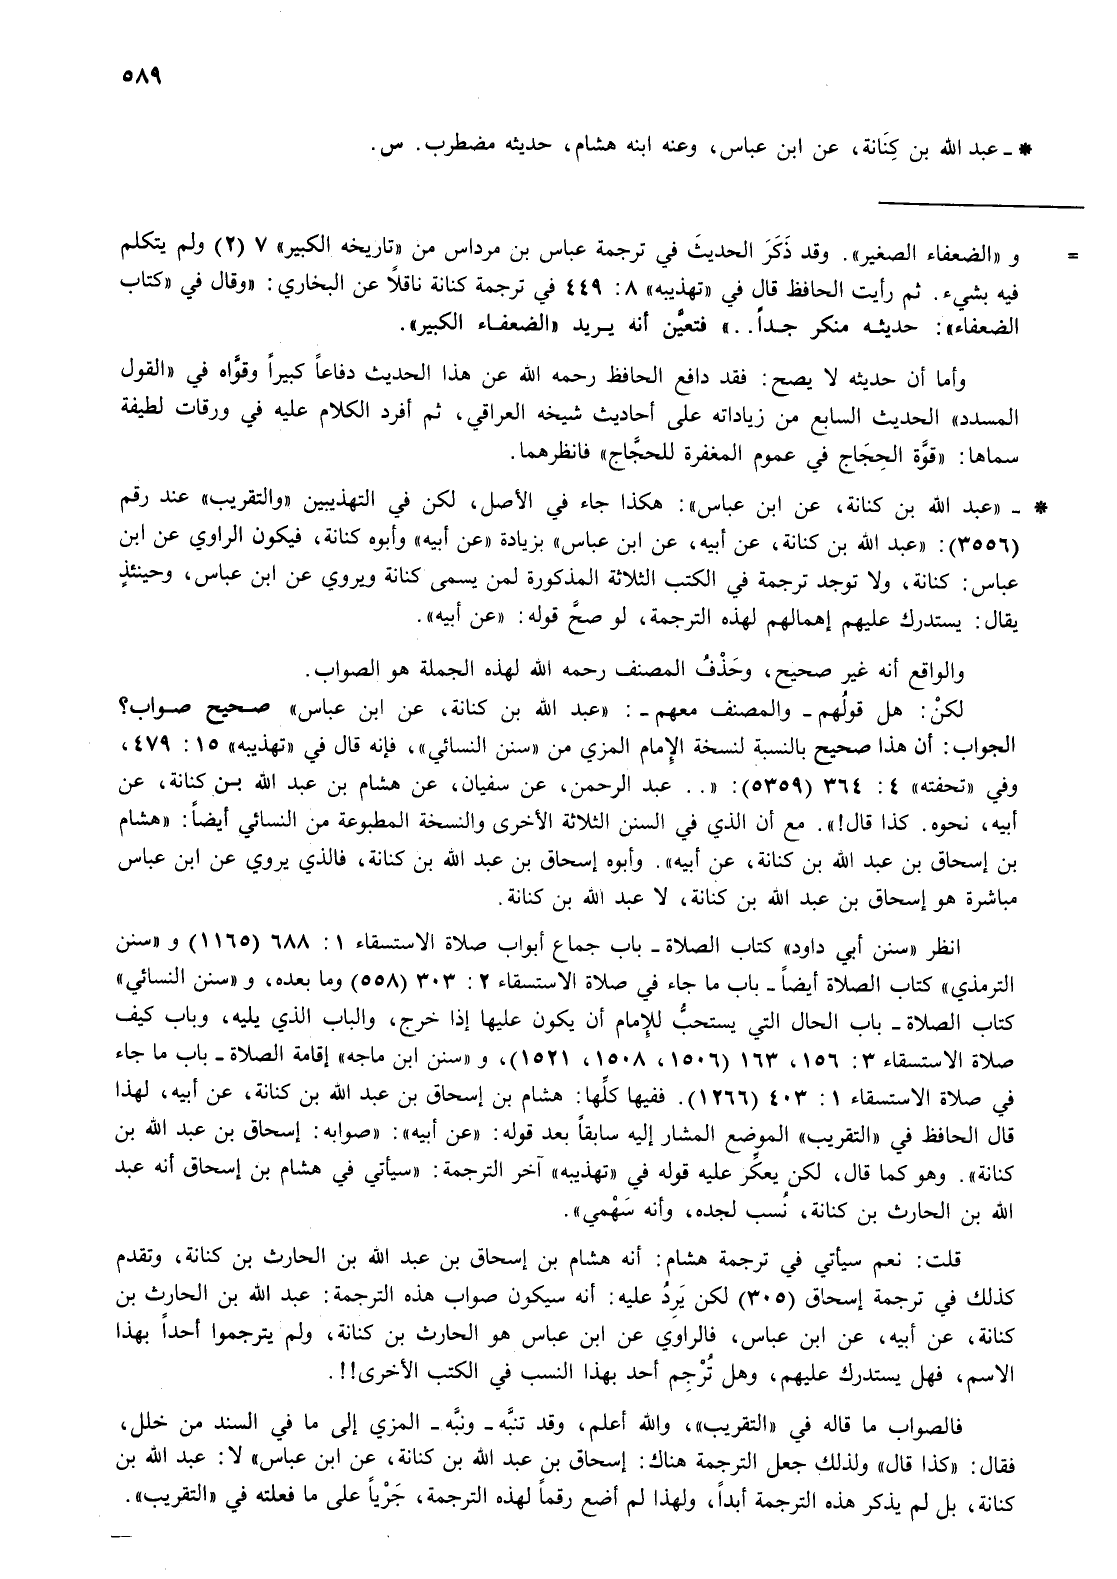 ٥٨٩
* ـ عبد الله بن كِنَانة، عن ابن عباس، وعنه ابنه هشام، حديثه مضطرب. س.
= و «الضعفاء الصغير». وقد ذَكَرَ الحديثَ في ترجمة عباس بن مرداس من «تاريخه الكبير» ٧ (٢) ولم يتكلم
فيه بشيء. ثم رأيت الحافظ قال في «تهذيبه» ٨: ٤٤٩ في ترجمة كنانة ناقلاً عن البخاري: «وقال في «كتاب
الضعفاء»: حديثه منكر جداً..» فتعيَّن أنه يريد «الضعفاء الكبير».
وأما أن حديثه لا يصح: فقد دافع الحافظ رحمه الله عن هذا الحديث دفاعاً كبيراً وقوَّاه في «القول
المسدد» الحديث السابع من زياداته على أحاديث شيخه العراقي، ثم أفرد الكلام عليه في ورقات لطيفة
سماها: «قوَّة الحِجَاج في عموم المغفرة للحجَّاج» فانظرهما.
* ـ «عبد الله بن كنانة، عن ابن عباس»: هكذا جاء في الأصل، لكن في التهذيبين «والتقريب» عند رقم
(٣٥٥٦): «عبد الله بن كنانة، عن أبيه، عن ابن عباس» بزيادة «عن أبيه» وأبوه كنانة، فيكون الراوي عن ابن
عباس: كنانة، ولا توجد ترجمة في الكتب الثلاثة المذكورة لمن يسمى كنانة ويروي عن ابن عباس، وحينئذٍ
يقال: يستدرك عليهم إهمالهم لهذه الترجمة، لو صحَّ قوله: «عن أبيه».
والواقع أنه غير صحيح، وحَذْفُ المصنف رحمه الله لهذه الجملة هو الصواب.
لكنْ: هل قولُهم ـ والمصنف معهم ـ: «عبد الله بن كنانة، عن ابن عباس» صحيح صواب؟
الجواب: أن هذا صحيح بالنسبة لنسخة الإمام المزي من «سنن النسائي»، فإنه قال في «تهذيبه» ١٥: ٤٧٩،
وفي «تحفته» ٤: ٣٦٤ (٥٣٥٩): «.. عبد الرحمن، عن سفيان، عن هشام بن عبد الله بن كنانة، عن
أبيه، نحوه. كذا قال!». مع أن الذي في السنن الثلاثة الأخرى والنسخة المطبوعة من النسائي أيضاً: «هشام
بن إسحاق بن عبد الله بن كنانة، عن أبيه». وأبوه إسحاق بن عبد الله بن كنانة، فالذي يروي عن ابن عباس
مباشرة هو إسحاق بن عبد الله بن كنانة، لا عبد الله بن كنانة.
انظر «سنن أبي داود» كتاب الصلاة ـ باب جماع أبواب صلاة الاستسقاء ١: ٦٨٨ (١١٦٥) و «سنن
الترمذي» كتاب الصلاة أيضاً ـ باب ما جاء في صلاة الاستسقاء ٢: ٣٠٣ (٥٥٨) وما بعده، و «سنن النسائي»
كتاب الصلاة ـ باب الحال التي يستحبُّ للإمام أن يكون عليها إذا خرج، والباب الذي يليه، وباب كيف
صلاة الاستسقاء ٣: ١٥٦، ١٦٣ (١٥٠٦، ١٥٠٨، ١٥٢١)، و «سنن ابن ماجه» إقامة الصلاة ـ باب ما جاء
في صلاة الاستسقاء ١: ٤٠٣ (١٢٦٦). ففيها كلِّها: هشام بن إسحاق بن عبد الله بن كنانة، عن أبيه، لهذا
قال الحافظ في «التقريب» الموضع المشار إليه سابقاً بعد قوله: «عن أبيه»: «صوابه: إسحاق بن عبد الله بن
كنانة». وهو كما قال، لكن يعكِّر عليه قوله في «تهذيبه» آخر الترجمة: «سيأتي في هشام بن إسحاق أنه عبد
الله بن الحارث بن كنانة، نُسب لجده، وأنه سَهْمي».
قلت: نعم سيأتي في ترجمة هشام: أنه هشام بن إسحاق بن عبد الله بن الحارث بن كنانة، وتقدم
كذلك في ترجمة إسحاق (٣٠٥) لكن يَرِدُ عليه: أنه سيكون صواب هذه الترجمة: عبد الله بن الحارث بن
كنانة، عن أبيه، عن ابن عباس، فالراوي عن ابن عباس هو الحارث بن كنانة، ولم يترجموا أحداً بهذا
الاسم، فهل يستدرك عليهم، وهل تُرْجِم أحد بهذا النسب في الكتب الأخرى!!.
فالصواب ما قاله في «التقريب»، والله أعلم، وقد تنبَّه ـ ونبَّه ـ المزي إلى ما في السند من خلل،
فقال: «كذا قال» ولذلك جعل الترجمة هناك: إسحاق بن عبد الله بن كنانة، عن ابن عباس» لا: عبد الله بن
كنانة، بل لم يذكر هذه الترجمة أبداً، ولهذا لم أضع رقماً لهذه الترجمة، جَرْياً على ما فعلته في «التقريب».